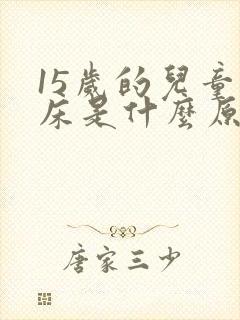 15歲的兒童
床是什麼原
唐家三少